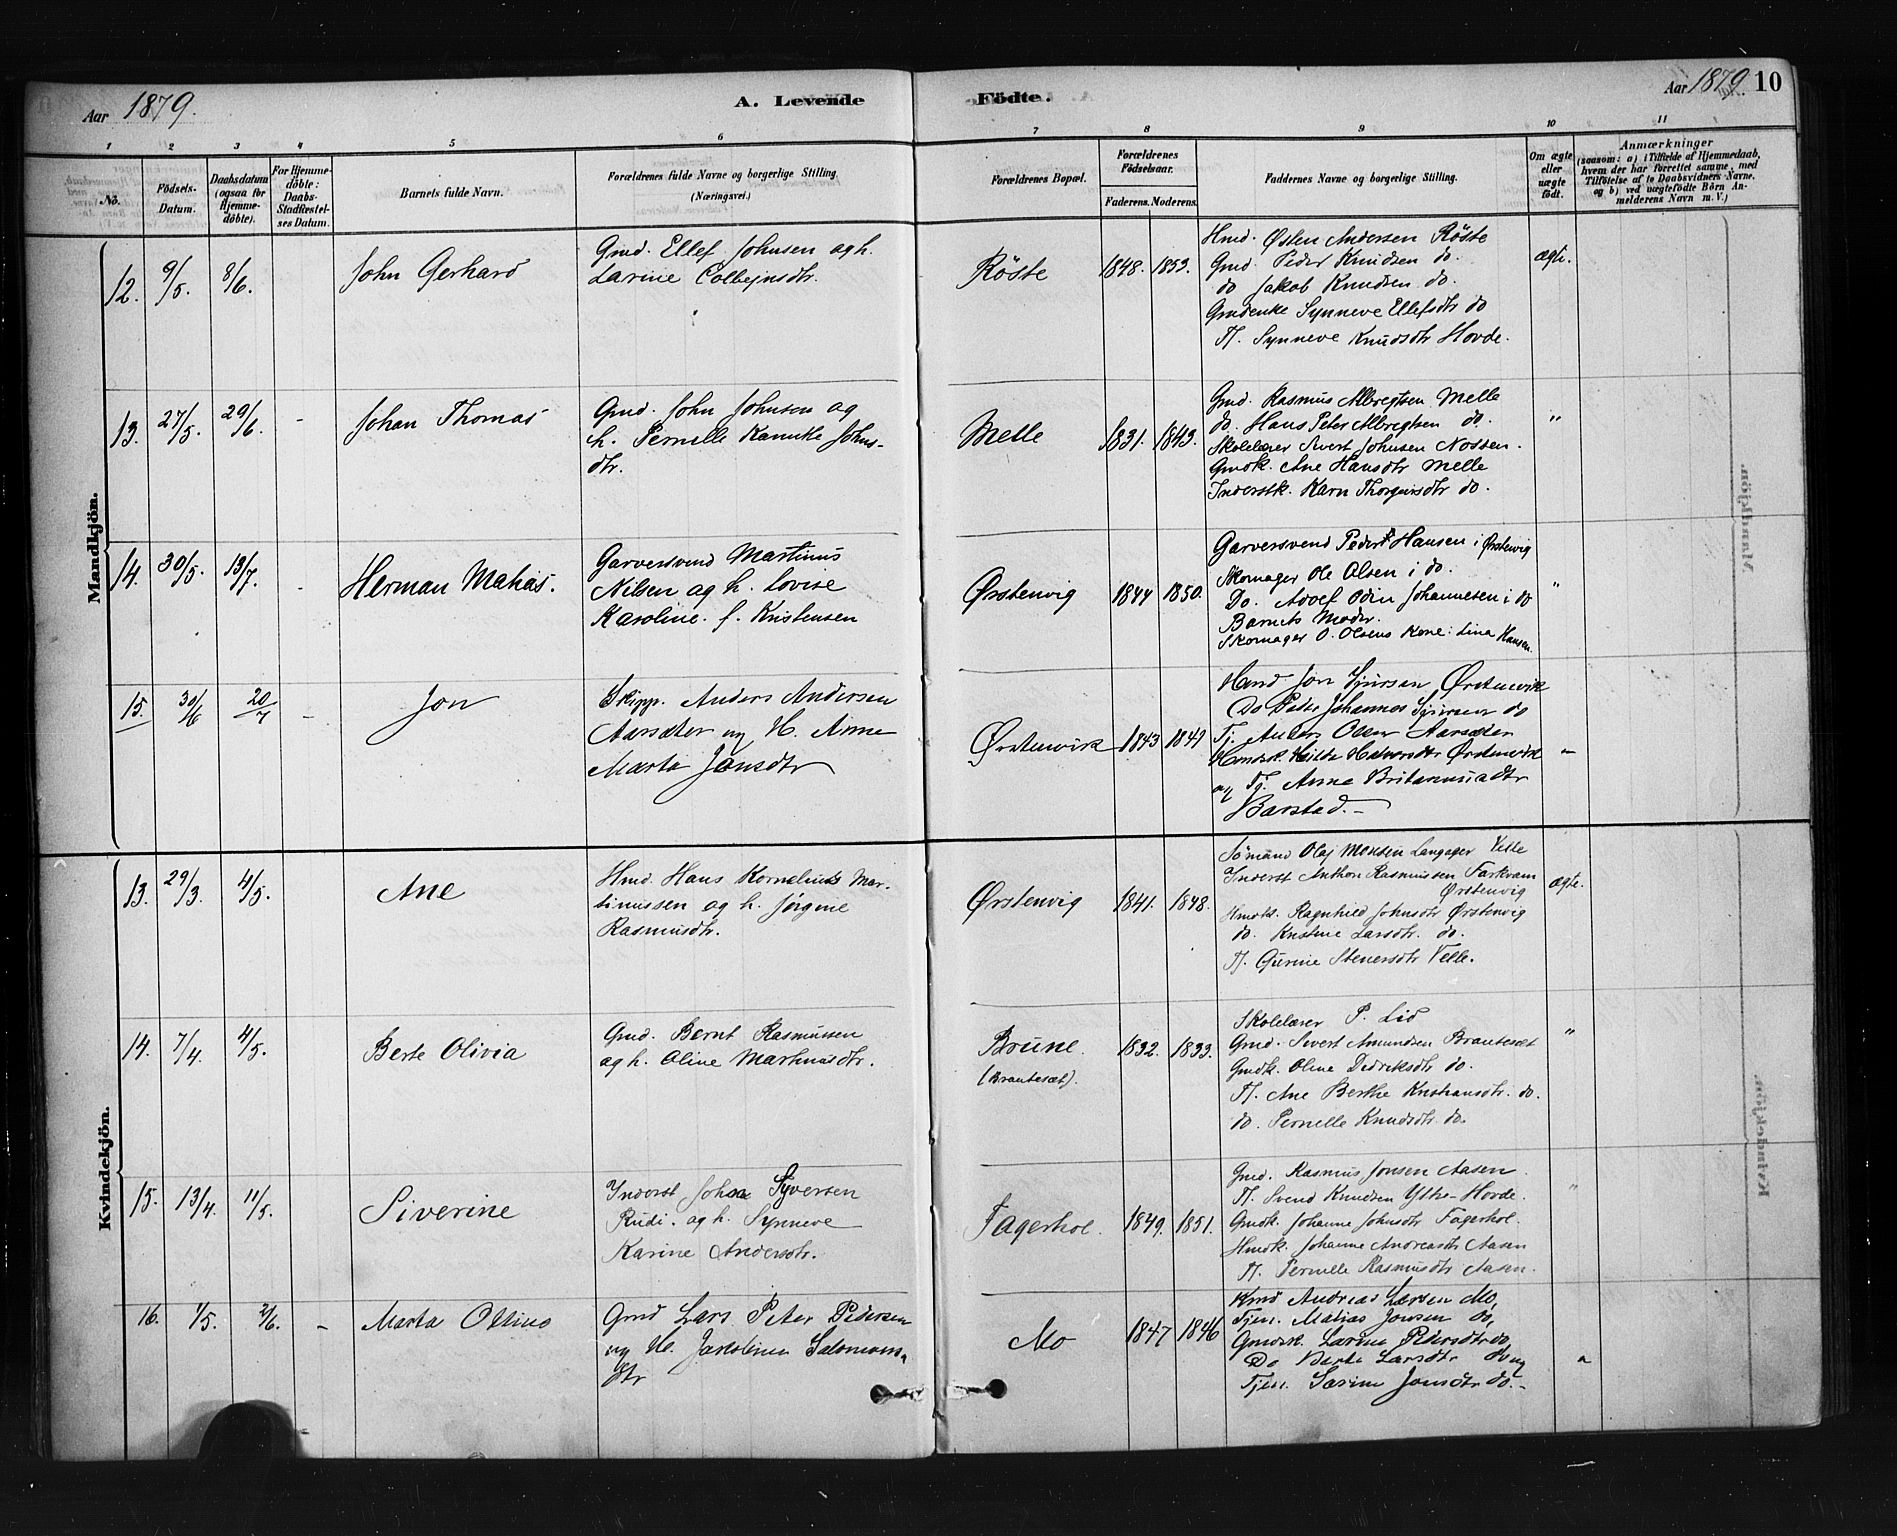 Aar 1879.
A. Levende Födte.
Aar 1879. 10
1 2 3 4 5 6 7 8 9 10 11
No.
Födsels-Datum.
Daabsdatum (ogsaa for Hjemmedöbte).
For Hjemmedöbte: Daabs-Stadfæstelses Datum.
Barnets fulde Navn.
Forældrenes fulde Navne og borgerlige Stilling (Næringsvei.)
Forældrenes Bopæl.
Forældrenes Födselsaar.
Faderens. Moderens.
Faddernes Navne og borgerlige Stilling.
Om ægte eller uægte födt.
Anmærkninger
(saasom: a) i Tilfælde af Hjemmedaab, hvem der har forrettet samme, med Tilföielse af to Daabsvidners Navne, og b) ved uægtefödte Börn Anmelderens Navn m. V.)
Mandkjön.
12. 9/5. 8/6. John Gerhard
Gmd. Ellef Johnsen og h.
Larine Colbejnsdtr.
Röste 1848. 1853.
Hmd. Østen Andersen Röste
Gmd. Peder Knudsen do.
do Jakob Knudsen do.
Gmdenke Synneve Ellefsdtr do
Tj. Synneve Knudsdtr Hovde.
ægte.
13. 27/5. 29/6. - Johan Thomas
Gmd. John Johnsen og
h. Pernelle Kanuke Johns-
dtr.
Melle 1831. 1843.
Gmd. Rasmus Albregtsen Melle
do. Hans Peter Albregtsen do.
Skolelærer Sivert Johnsen Nossen.
Gmdk. Ane Hansdtr Melle
Inderstk. Karn Thorgeirsdtr do.
"
14. 30/5. 13/7. - Herman Mahias.
Garversvend Martinus
Nilsen og h. Lovise
Karoline. f. Kristensen
Ørstenvig 1844 1850.
Garversvend Peder Hansen i Ørstenvig
Skomager Ole Olsen i do.
Do. Adolf Odin Johannesen i do
Barnets Moder.
Skomager O. Olsens Kone: Lina Hansen.
"
15. 30/6 20/7 - Jon
Skipp. Anders Andersen
Aarsæter og H. Anne
Marta Jonsdtr
Ørstenvik 1843 1849
Hmd Jon Sjursen Ørstenvik
Do Peder Johannes Sjursen do
Tj. Anders Olsen Aarsæter
Hmdsk. Hilda Halvorsdtr Ørstenvik
og Tj. Anne Britanusdtr
Barstad. -
-
Kvindekjön.
13. 29/3. 4/5. Ane
Hmd. Hans Kornelius Mar-
tinussen og h. Jørgine
Rasmusdtr.
Ørstenvig 1841. 1848.
Sömand Olaj Monsen Langager Velle
Inderst Anthon Rasmussen
Ørstenvig
Hmdk. Ragnhild Johnsdtr Ørstenvig
do. Kristine Larsdtr. do.
Tj. Gurine Stenersdtr Velle.
ægte.
14. 7/4. 4/5. Berte Olivia
Gmd. Bernt Rasmussen
og h. Oline Martinusdtr.
Brune. 1832. 1833.
(Brautesæt).
Skolelærer P. Lid
Gmd. Sivert Amundsen Brautesæt
Gmdk. Oline Dedriksdtr do.
Tj. Ane Berthe Kristiansdtr. do.
do. Pernelle Knudsdtr do.
"
15. 13/4. 11/5. Siverine
Inderst Johan Syversen
Rudi. og h. Synneve
Karine Andersdtr.
Fagerhol. 1849. 1851.
Gmd. Rasmus Jonsen Aasen
Tj. Svend Knudsen Ytre-Hovde.
Gmdk. Johanne Johnsdtr Fagerhol.
Hmdk. Johanne Andreasdtr Aasen
Tj. Pernelle Rasmusdtr Aasen.
"
16. 1/5. 2/6. - Marta Oline
Gmd Lars Peter Pedersen
og H. Jakobine Salomons-
dtr
Mo 1847 1846
Andreas Larsen Mo,
Tjen. Matias Jonsen do,
Gmdsk. Larine Pedersdtr do
Do Berte Larsdtr do og
Tjen. Sarine Jonsdtr do. -
"